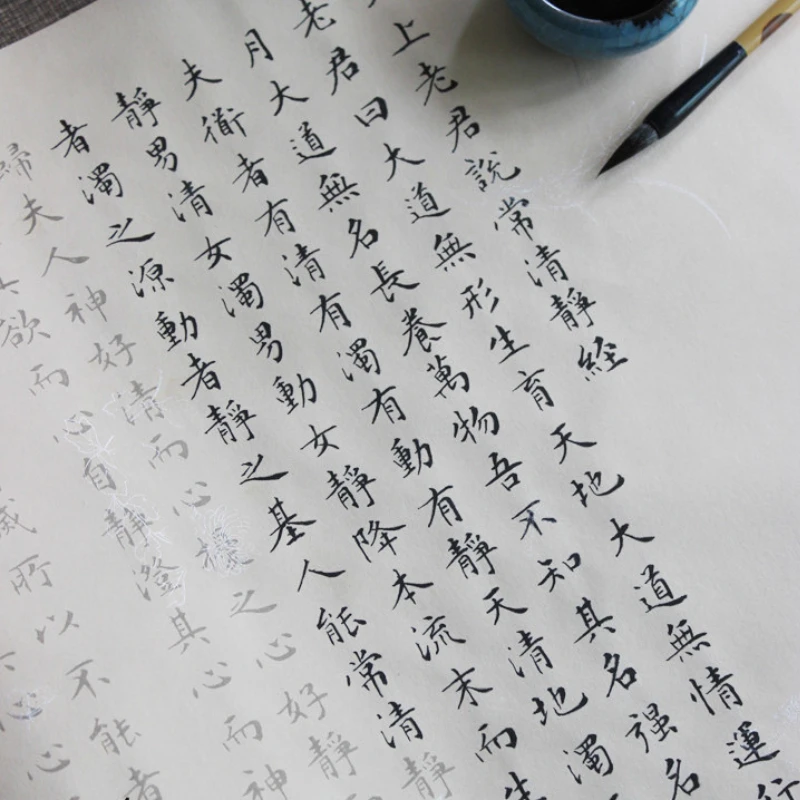 上老君說常清靜經
老君曰大道無形生育天地大道無情運行
月大道無名長養萬物吾不知其名强名
夫衜者有清有濁有動有靜天清地濁
靜男清女濁男動女靜降本流末而生
者濁之源動者靜之基人能常清靜
歸夫人神好清而心擾之心好靜
其欲而心自靜澄其心而神
滅所以不能者
心心